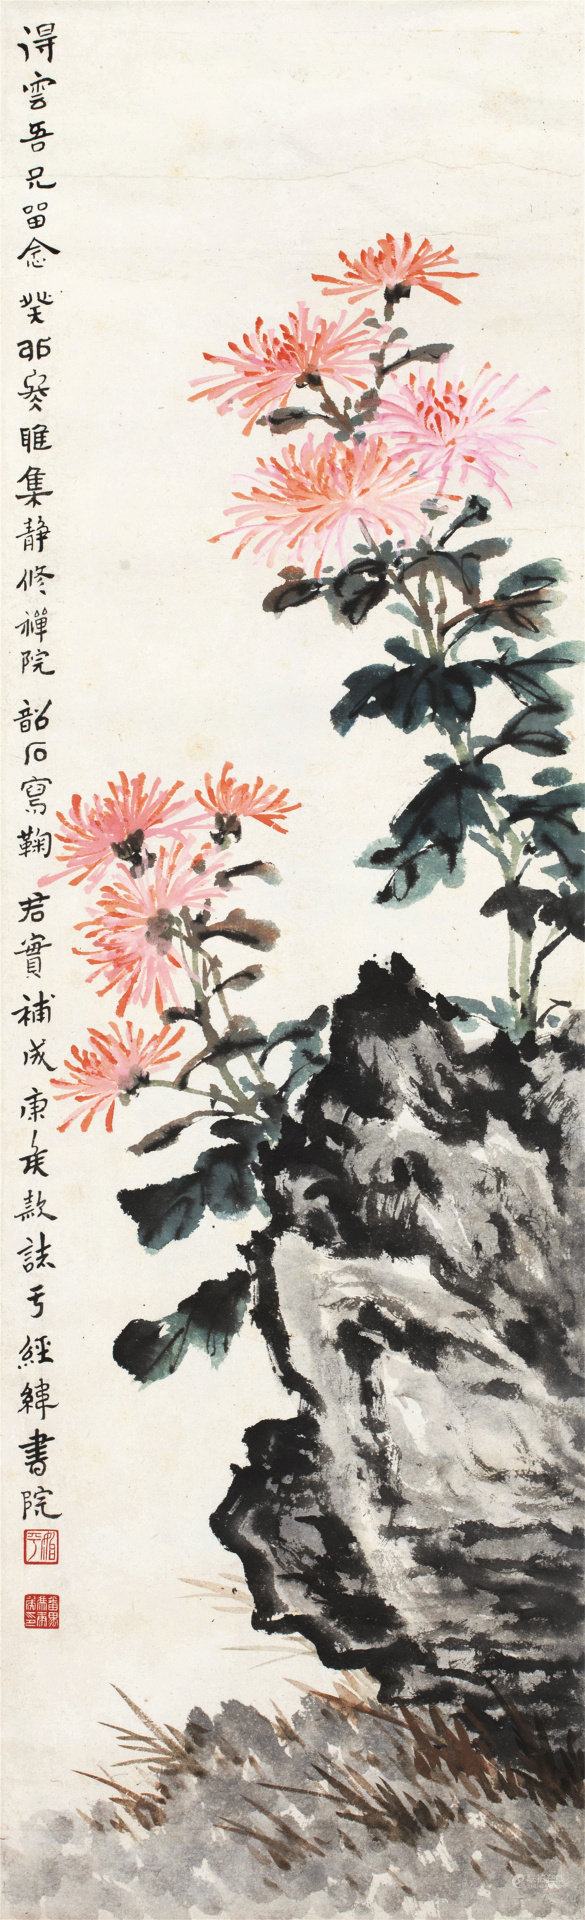 得雲吾兄留念 癸卯冬雅集静修禪院 韶石寫鞠 君實補成 庚矦款誌于經緯書院